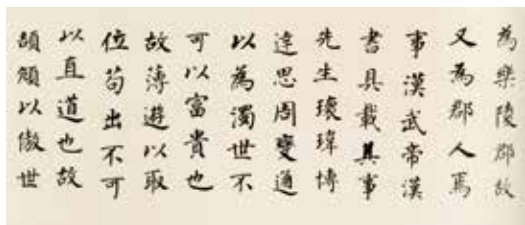 為樂陵郡故
又為郡人焉
事漢武帝漢
書具載其事
先生瓌瑋博
達思周變通
以為濁世不
可以富貴也
故薄遊以取
位苟出不可
以直道也故
頡頏以傲世